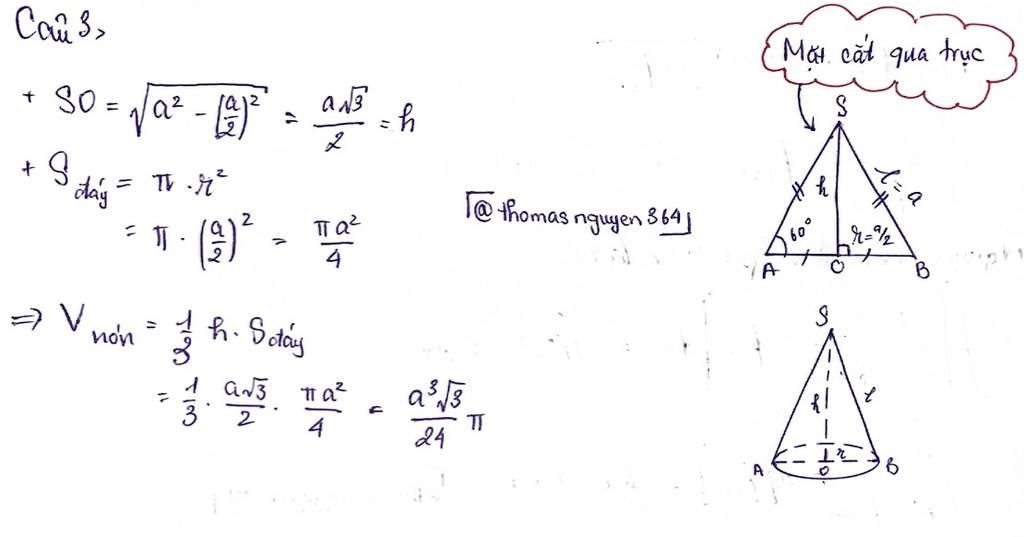 Câu 3,
+ SO = √(a² - (a/2)²) = a√3/2 = h
+ S đáy = π . r²
= π . (a/2)² = πa²/4
⇒ V nón = 1/3 h . S đáy
= 1/3 . a√3/2 . πa²/4 = a³√3/24 π
@thomasnguyen364
Mặt cắt qua trục
S
h
l = a
60°
r = a/2
A
O
B
S
h
l
r
A
O
B